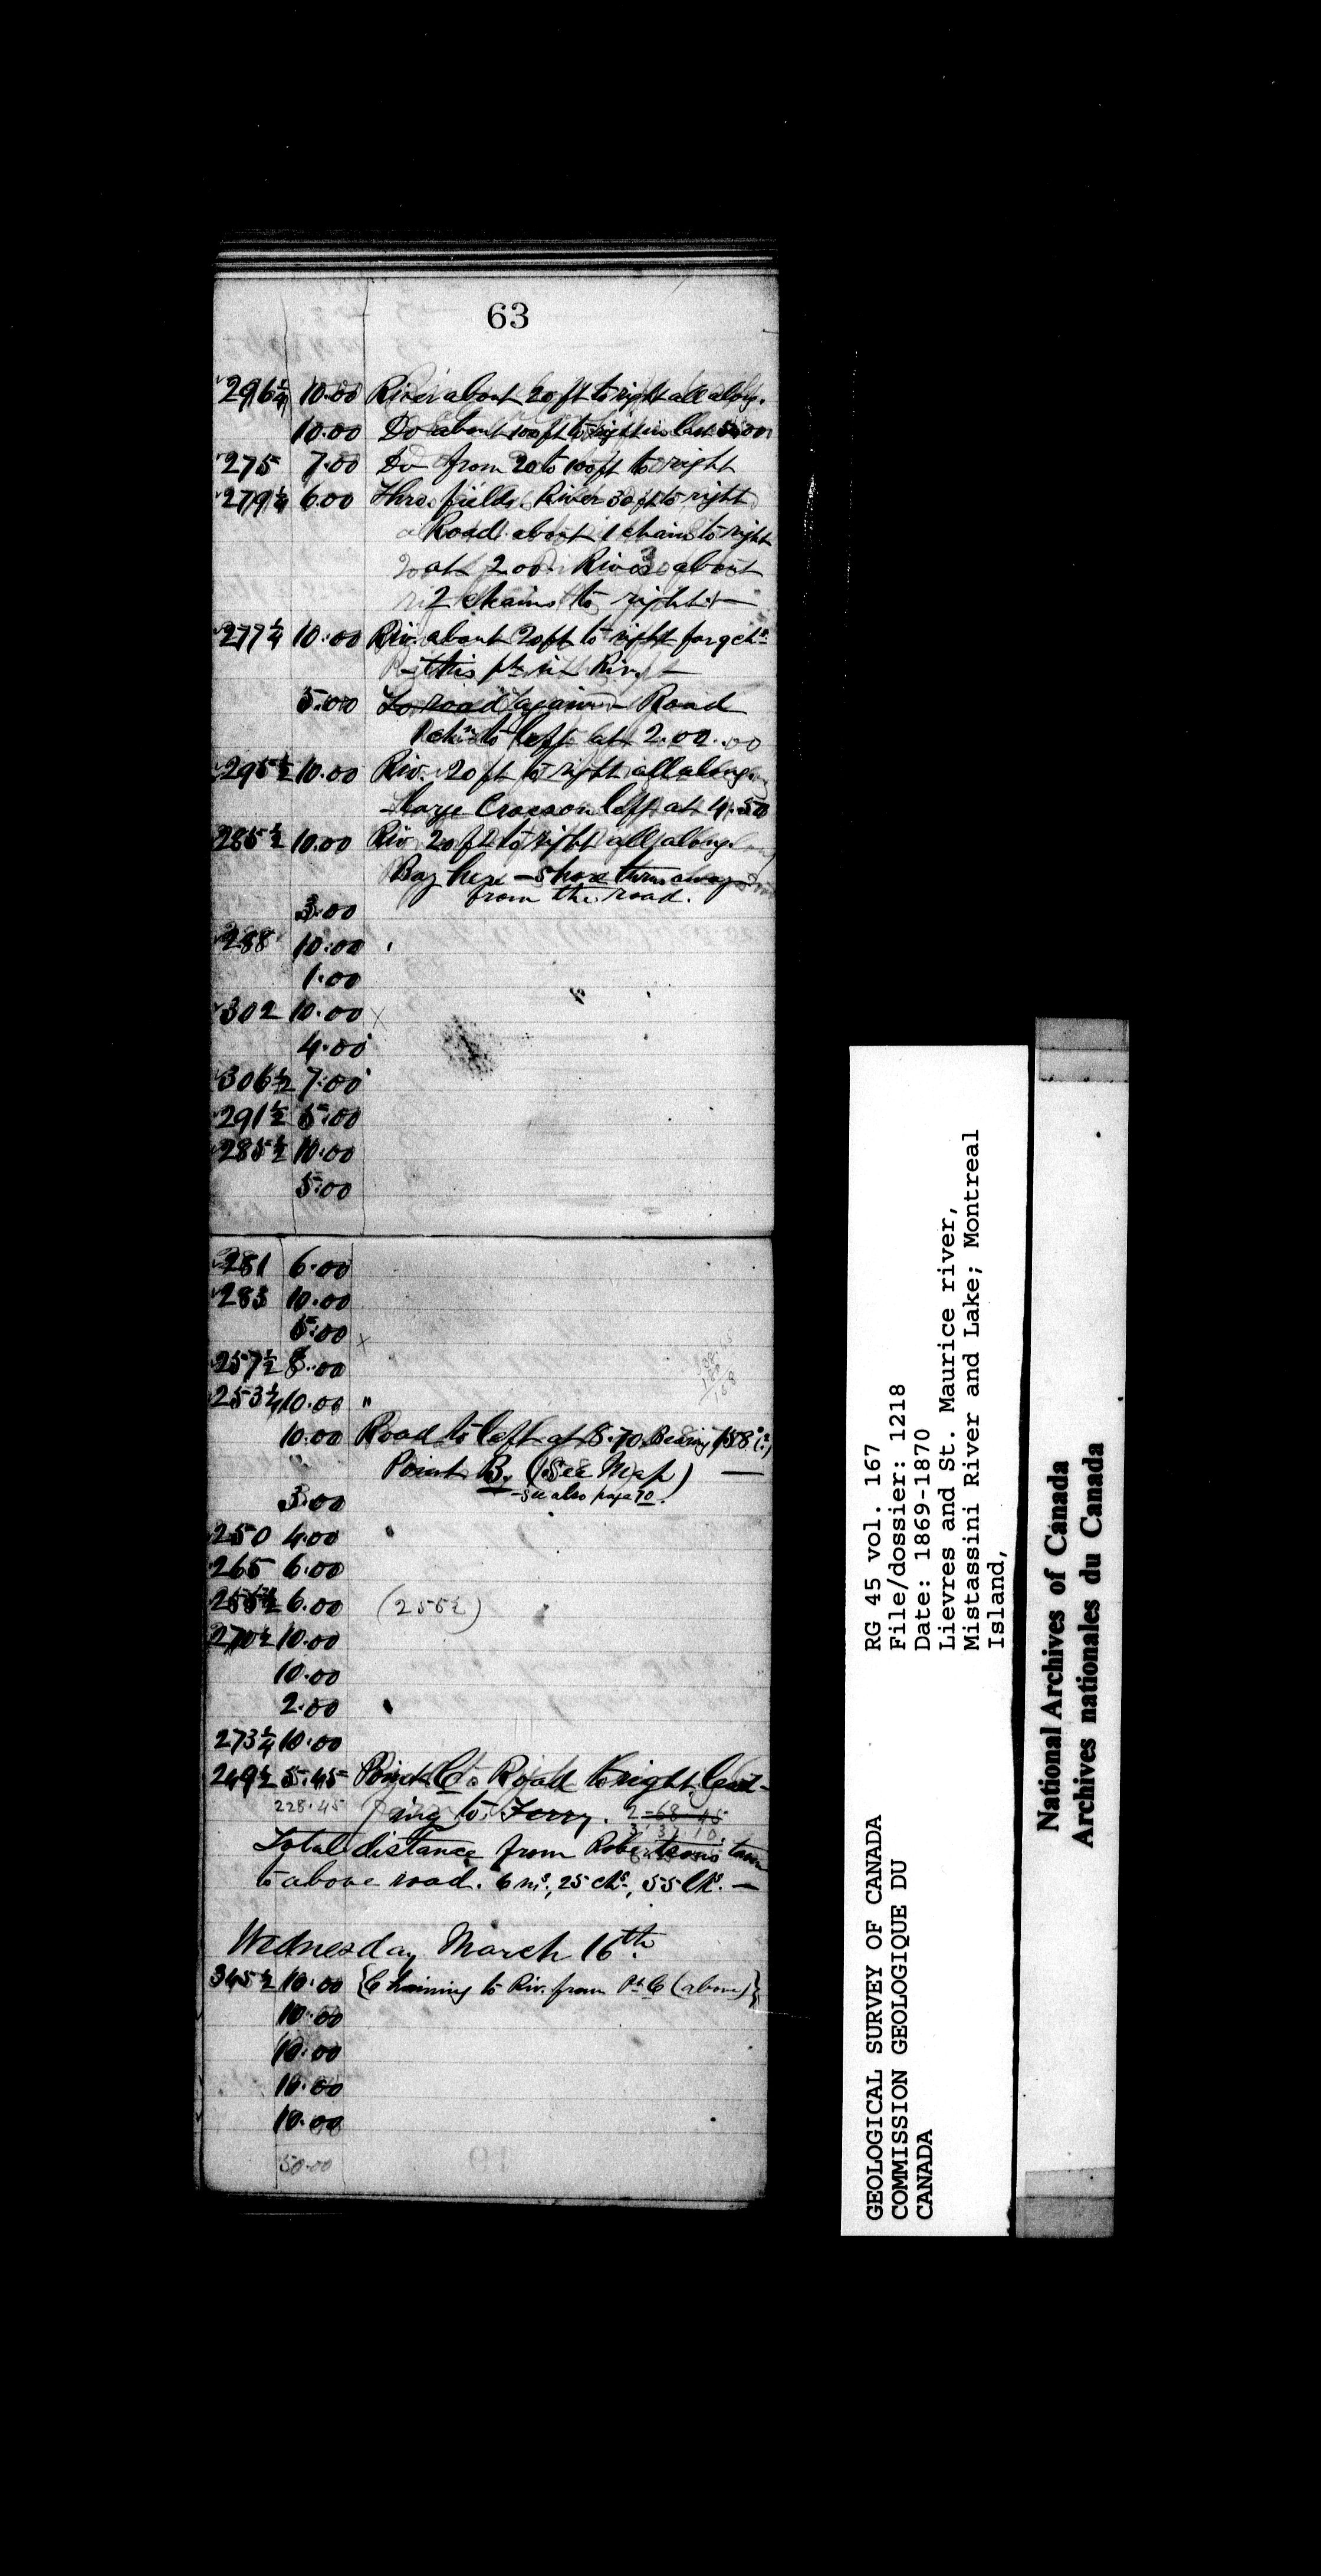 63
296¼ 10.00 River about 20 ft to right all along.
10.00 Do about 100 ft to right in last 5.00
275 7.00 Do from 20 to 100 ft to right
279¼ 6.00 Thro. fields River 30 ft to right
Road about 1 chain to right
at 2.00. River about
2 chains to right —
277¼ 10.00 Riv. about 20 ft to right for 9 chs
5.00 To road again — Road
1 chn to left at 2.00
295½ 10.00 Riv. 20 ft to right all along.
Large Cross on left at 4.50
285½ 10.00 Riv 20 ft to right all along.
Bay here — shore turns away
from the road.
3.00
288 10.00
1.00
302 10.00 x
4.00
306½ 7.00
291½ 5.00
285½ 10.00
5.00
281 6.00
283 10.00
5.00 x
257½ 8.00
253¼ 10.00 "
10.00 Road to left at 8.70 Bearing 158°(?)
Point B. (See Map) —
- see also page 70.
3.00
250 4.00
265 6.00
255½ 6.00 (255½)
270½ 10.00
10.00
2.00
273¼ 10.00
249½ 5.45 Point C. Road to right lead-
228.45 ing to Ferry. 2-68-45
3.37.10
Total distance from Robertson's
to above road. 6 ms., 25 chs., 55 lks. —
Wednesday March 16th.
345½ 10.00 {Chaining to Riv. from Pt C (above)}
10.00
10.00
10.00
10.00
50.00
GEOLOGICAL SURVEY OF CANADA
COMMISSION GEOLOGIQUE DU
CANADA
RG 45 vol. 167
File/dossier: 1218
Date: 1869-1870
Lievres and St. Maurice river,
Mistassini River and Lake; Montreal
Island,
National Archives of Canada
Archives nationales du Canada